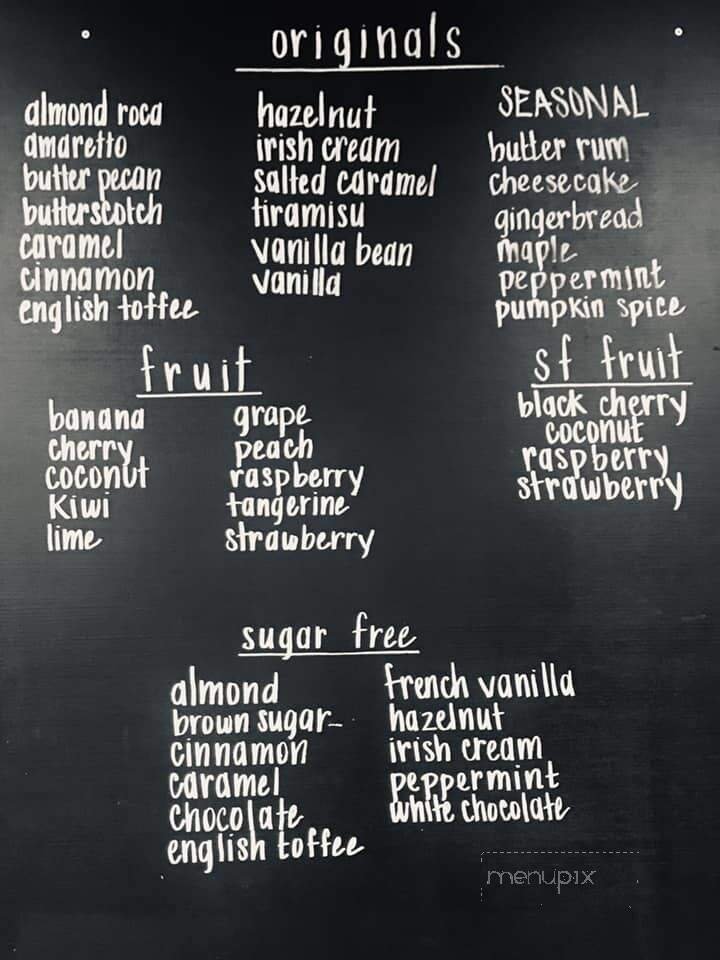 originals
almond roca
amaretto
butter pecan
butterscotch
caramel
cinnamon
english toffee
hazelnut
irish cream
salted caramel
tiramisu
vanilla bean
vanilla
SEASONAL
butter rum
cheesecake
gingerbread
maple
peppermint
pumpkin spice
fruit
banana
cherry
coconut
kiwi
lime
grape
peach
raspberry
tangerine
strawberry
sf fruit
black cherry
coconut
raspberry
strawberry
sugar free
almond
brown sugar-
cinnamon
caramel
chocolate
english toffee
french vanilla
hazelnut
irish cream
peppermint
white chocolate
menupix